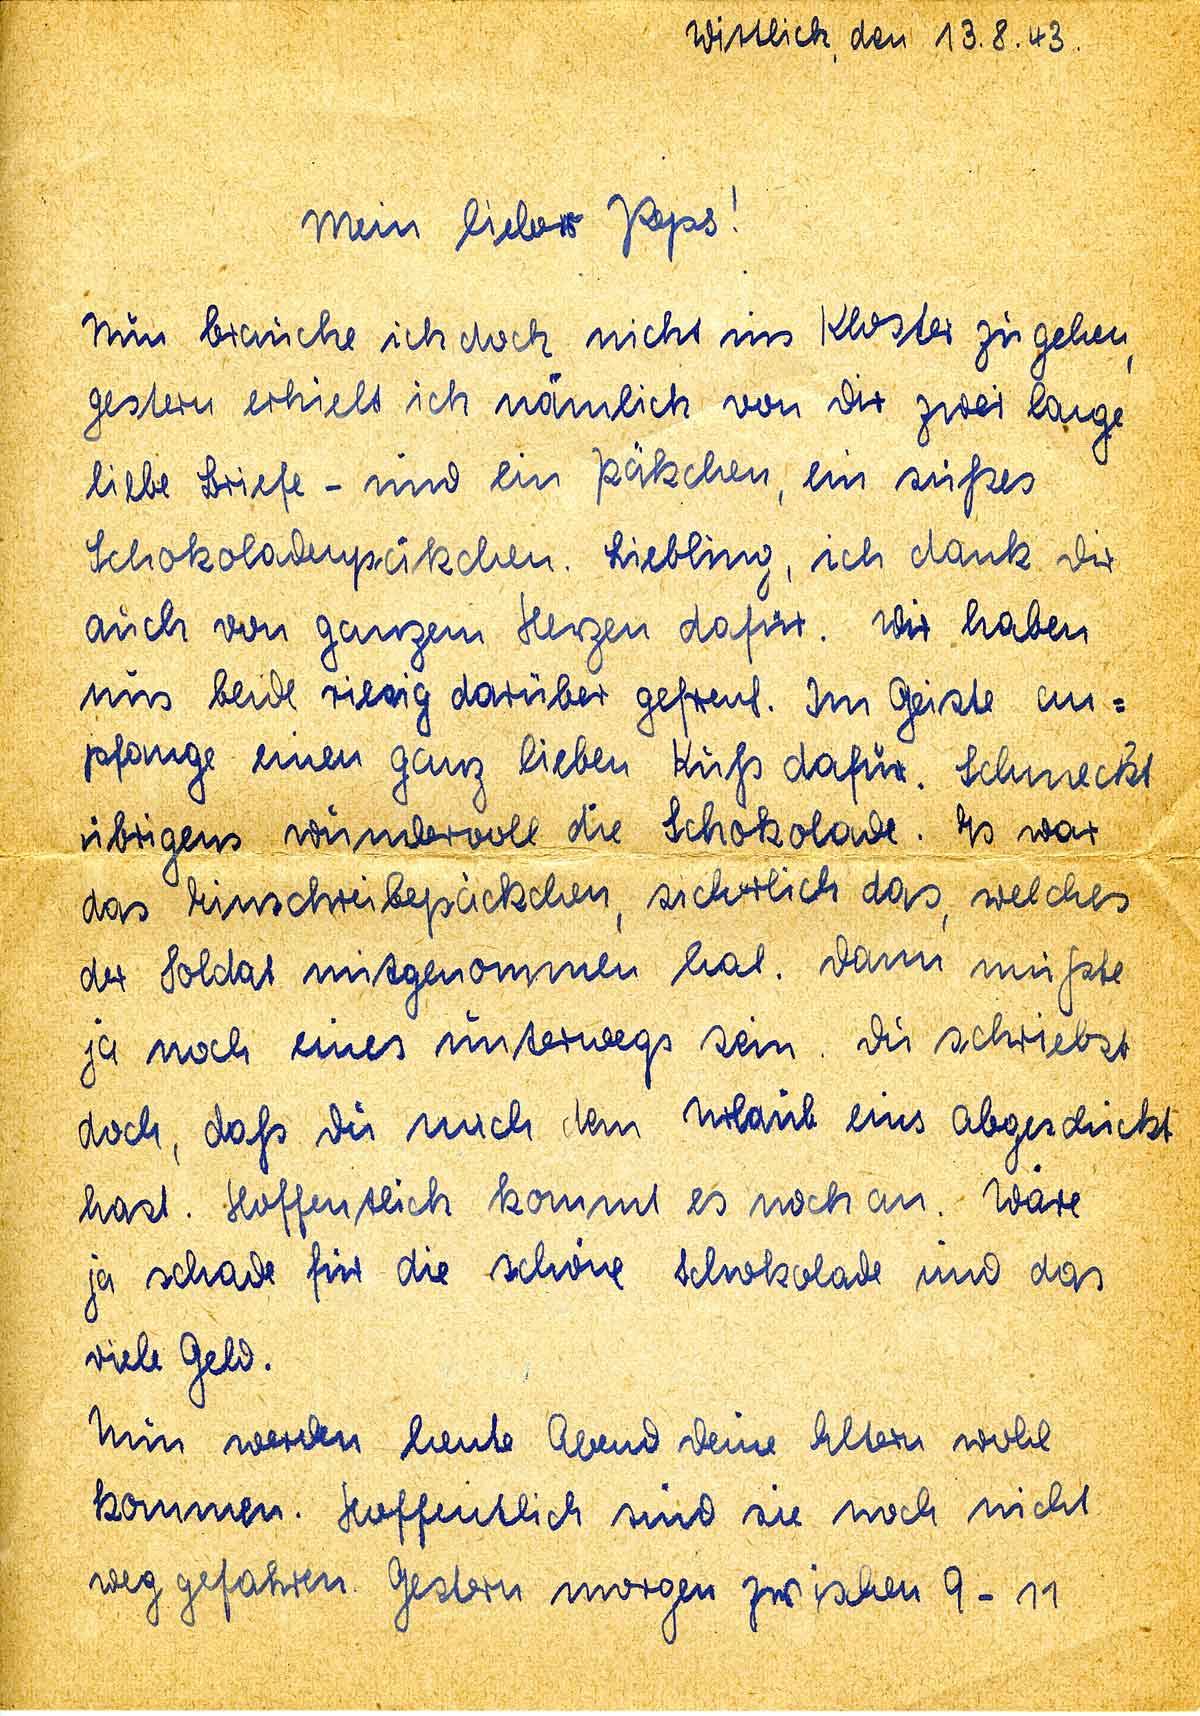 Wittlich, den 13.8.43.
Mein lieber Peps!
Nun brauche ich doch nicht ins Kloster zu gehen,
gestern erhielt ich nämlich von dir zwei lange
liebe Briefe - und ein Päkchen, ein süßes
Schokoladenpäkchen. Liebling, ich dank dir
auch von ganzem Herzen dafür. Wir haben
uns beide riesig darüber gefreut. Im Geiste em=
pfange einen ganz lieben Kuß dafür. Schmeckt
übrigens wundervoll die Schokolade. Es war
das Einschreibepäckchen, sicherlich das, welches
der Soldat mitgenommen hat. Dann müßte
ja noch eines unterwegs sein. Du schriebst
doch, daß du nach dem Urlaub eins abgeschickt
hast. Hoffentlich kommt es noch an. Wäre
ja schade für die schöne Schokolade und das
viele Geld.
Nun werden heute Abend deine Eltern wohl
kommen. Hoffentlich sind sie noch nicht
weg gefahren. Gestern morgen zwischen 9 - 11